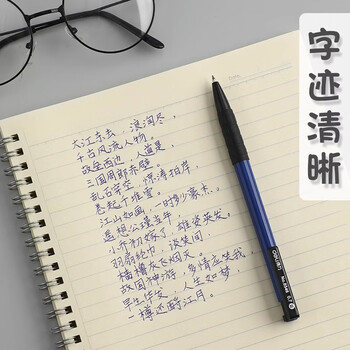 字迹清晰
大江东去，浪淘尽，
千古风流人物。
故垒西边，人道是，
三国周郎赤壁。
乱石穿空，惊涛拍岸，
卷起千堆雪。
江山如画，一时多少豪杰。
遥想公瑾当年，
小乔初嫁了，雄姿英发。
羽扇纶巾，谈笑间，
樯橹灰飞烟灭。
故国神游，多情应笑我，
早生华发，人生如梦，
一樽还酹江月。